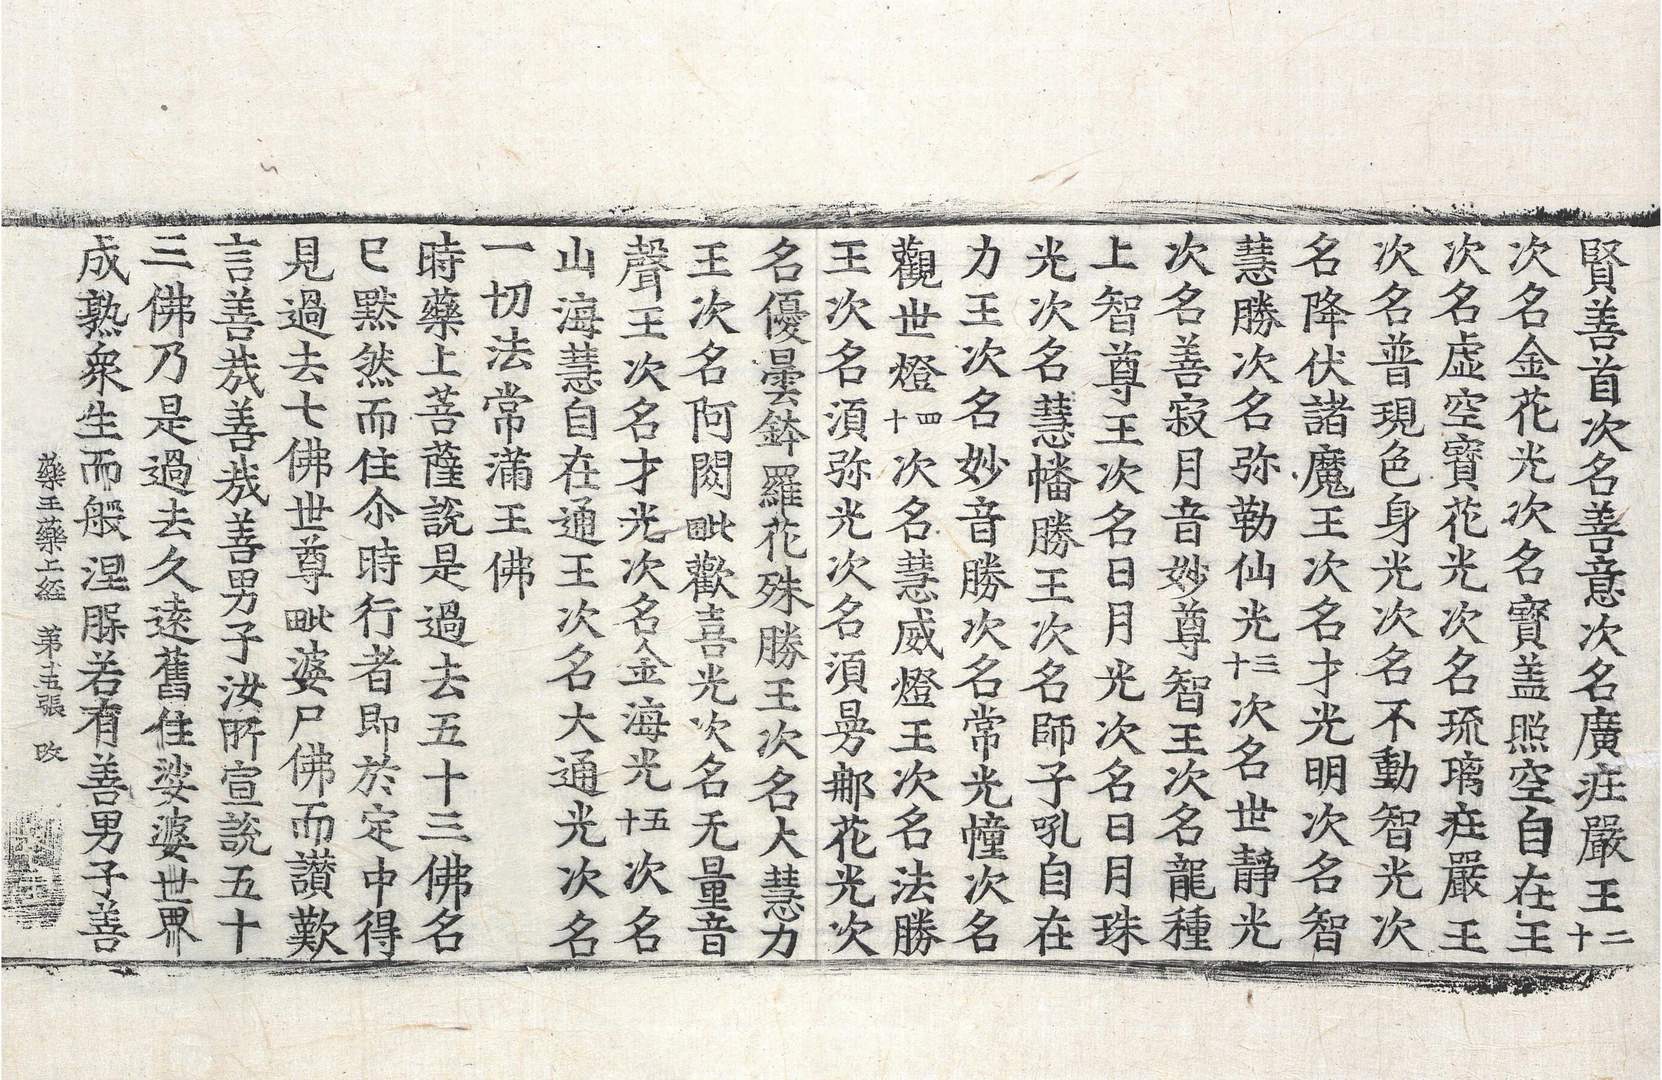 賢善首次名善意次名廣庄嚴王二十
次名金花光次名寶盖照空自在王
次名虛空寶花光次名琉璃庄嚴王
次名普現色身光次名不動智光次
名降伏諸魔王次名才光明次名智
慧勝次名弥勒仙光三十次名世静光
次名善寂月音妙尊智王次名龍種
上智尊王次名日月光次名日月珠
光次名慧幡勝王次名師子吼自在
力王次名妙音勝次名常光幢次名
觀世燈四十次名慧威燈王次名法勝
王次名湏弥光次名湏曼郍花光次
名優曇鉢羅花殊勝王次名大慧力
王次名阿閦毗歡喜光次名无量音
聲王次名才光次名金海光五十次名
山海慧自在通王次名大通光次名
一切法常滿王佛
時藥上菩薩說是過去五十三佛名
已默然而住尒時行者即於定中得
見過去七佛世尊毗婆尸佛而讃歎
言善㢤善㢤善男子汝所宣說五十
三佛乃是過去久遠舊住娑婆世界
成熟衆生而般涅縣若有善男子善
藥王藥上經 第十五張 改